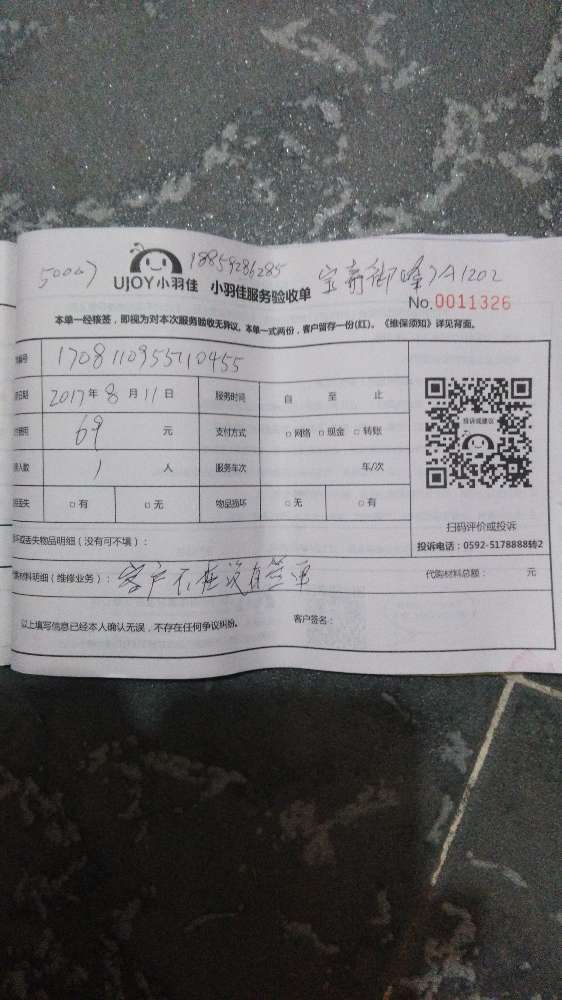 50007 18859286285
UJOY小羽佳 小羽佳服务验收单 A1202
No.0011326
本单一经核签，即视为对本次服务验收无异议。本单一式两份，客户留存一份(红)。《维保须知》详见背面。
编号 1708110955110455
日期 2017年8月11日 服务时间 自 至 止
费用 69 元 支付方式 □网络 □现金 □转账
人数 1 人 服务车次 年/次
丢失 □有 □无 物品损坏 □无 □有
投诉或建议
扫码评价或投诉
投诉电话：0592-5178888转2
坏或丢失物品明细（没有可不填）：
材料明细（维修业务）： 客户不在没有签单 代购材料总额： 元
以上填写信息已经本人确认无误，不存在任何争议纠纷。 客户签名：